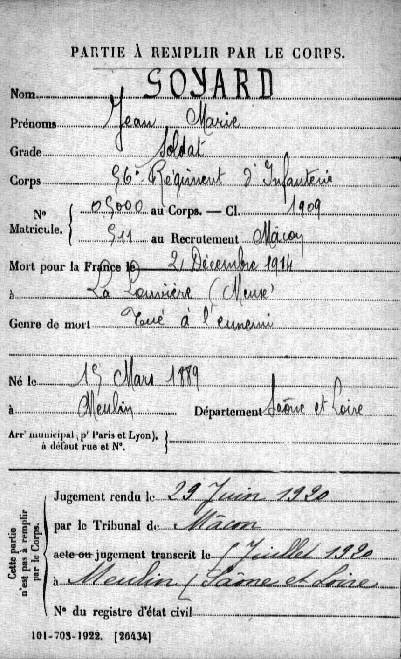 PARTIE À REMPLIR PAR LE CORPS.
Nom SOYARD
Prénoms Jean Marie
Grade Soldat
Corps 56e Régiment d'Infanterie
Nº Matricule. { 05000 au Corps. — Cl. 1909
511 au Recrutement Mâcon
Mort pour la France le 2 Décembre 1914
à La Louvière (Meuse)
Genre de mort Tué à l'ennemi
Né le 15 Mars 1889
à Meulin Département Saône et Loire
Arrt municipal (pr Paris et Lyon), à défaut rue et Nº. }
Cette partie n'est pas à remplir par le Corps.
Jugement rendu le 29 Juin 1920
par le Tribunal de Mâcon
acte ou jugement transcrit le Juillet 1920
à Meulin (Saône et Loire
Nº du registre d'état civil
101-703-1922. [26434]